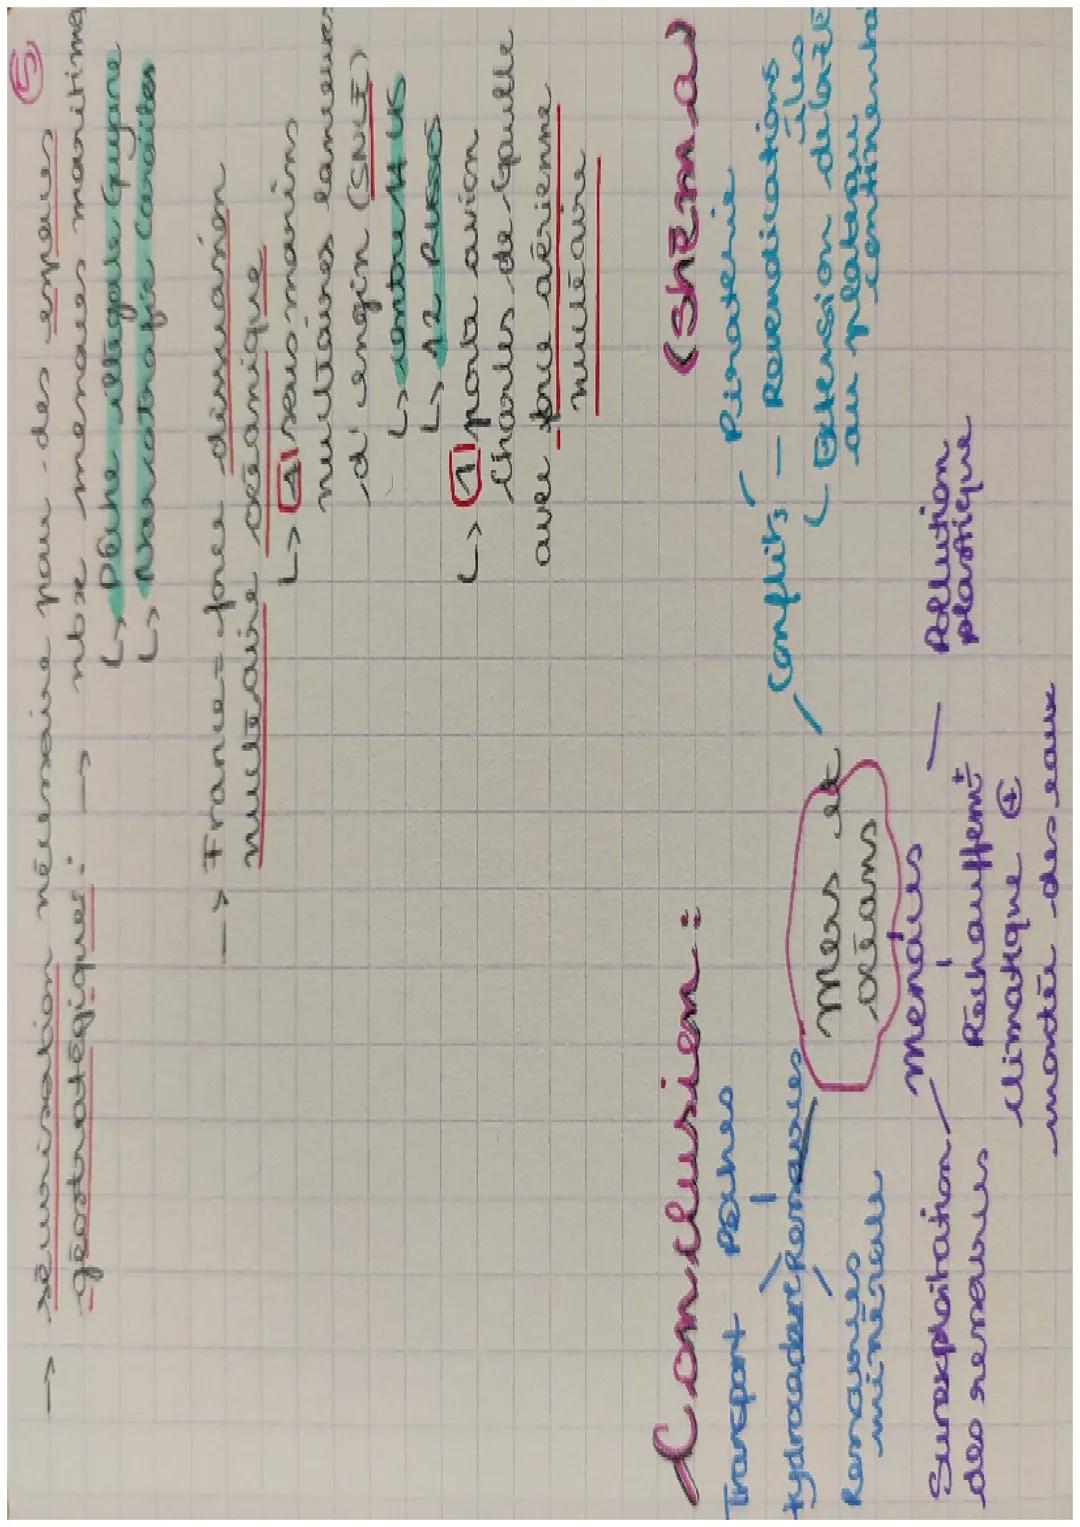 ⑤
→ sécurisation nécessaire pour des espaces
géostratégiques : → nbx menaces maritimes
↳ Pêche illégale Guyane
↳ Narcotrafic Caraïbes
→ France = force dissuasion
nucléaire océanique
↳ 4 sous marins
nucléaires lanceurs
d'engin (SNLE)
↳ contre 14 US
↳ 12 Russes
↳ 1 porte avion
Charles de Gaulle
avec force aérienne
nucléaire
Conclusion : (Shéma)
Transport Pêches
Hydrocarbure Ressources
Ressources
minérale
Mers et
océans
Conflits
Piraterie
Revendications
îles
Extension de la ZEE
au plateau
continental
Menaces
Surexploitation
des ressources
Réchauffemt
climatique +
montée des eaux
Pollution
plastique